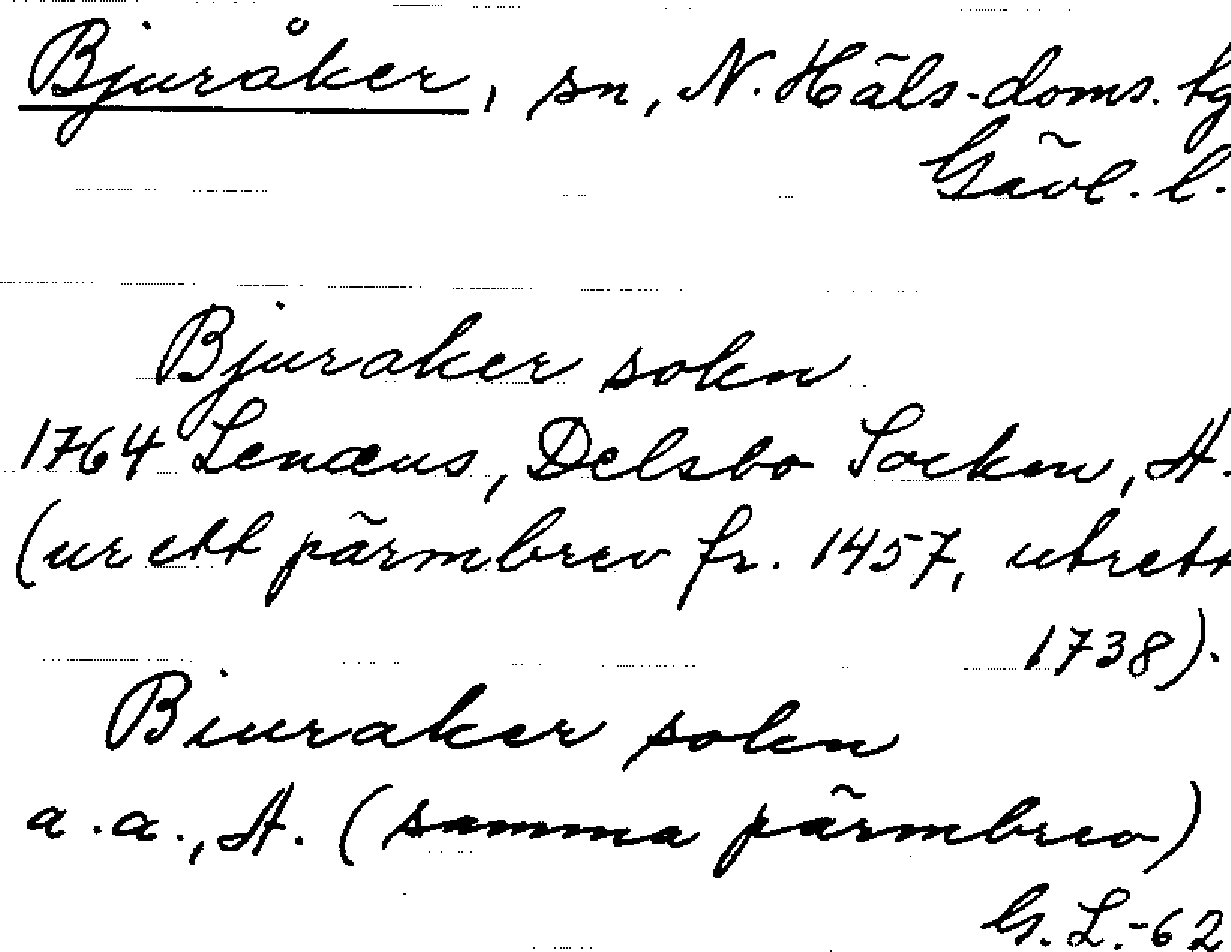 Bjuråker, sn, N. Häls. doms. tg
Gävl. l.
Bjuraker sokn
1764 Lenæus, Delsbo Socken, A.
(ur ett pärmbrev fr. 1457, utrett
1738).
Biuraker sokn
a.a., A. (samma pärmbrev)
G. L. -62